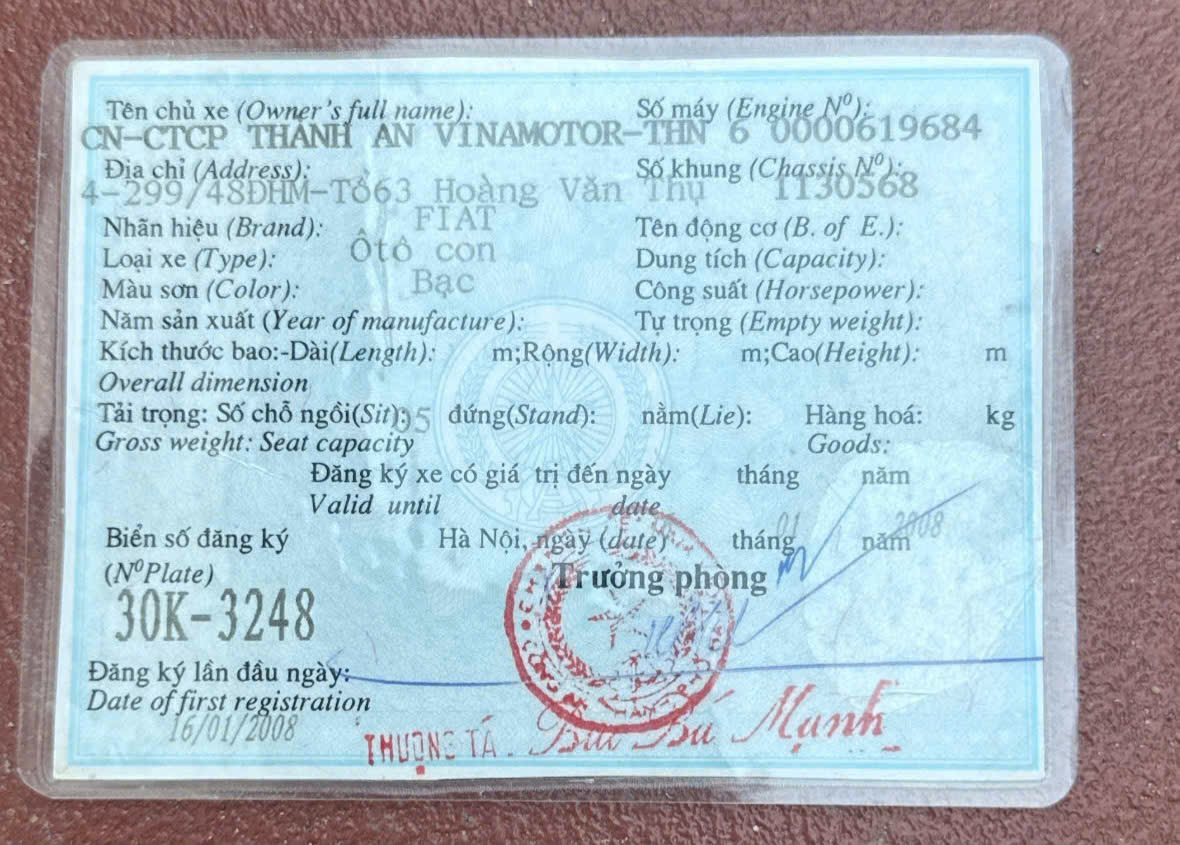 Tên chủ xe (Owner's full name): Số máy (Engine Nº):
CN-CTCP THÀNH AN VINAMOTOR-THN 6 0000619684
Địa chỉ (Address): Số khung (Chassis Nº):
4-299/48ĐHM-Tổ63 Hoàng Văn Thụ 1130568
Nhãn hiệu (Brand): FIAT Tên động cơ (B. of E.):
Loại xe (Type): Ôtô con Dung tích (Capacity):
Màu sơn (Color): Bạc Công suất (Horsepower):
Năm sản xuất (Year of manufacture): Tự trọng (Empty weight):
Kích thước bao:-Dài(Length): m;Rộng(Width): m;Cao(Height): m
Overall dimension
Tải trọng: Số chỗ ngồi(Sit): 05 đứng(Stand): nằm(Lie): Hàng hoá: kg
Gross weight: Seat capacity Goods:
Đăng ký xe có giá trị đến ngày tháng năm
Valid until date
Biển số đăng ký Hà Nội, ngày (date) tháng 01 năm 2008
(NºPlate) Trưởng phòng
30K-3248
Đăng ký lần đầu ngày:
Date of first registration
16/01/2008
THƯỢNG TÁ. Bùi Bá Mạnh